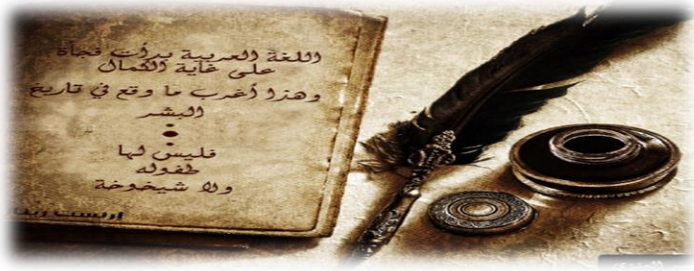 اللغة العربية بدأت فجأة
على غاية الكمال
وهذا أغرب ما وقع في تاريخ
البشر
فليس لها
طفوله
ولا شيخوخة